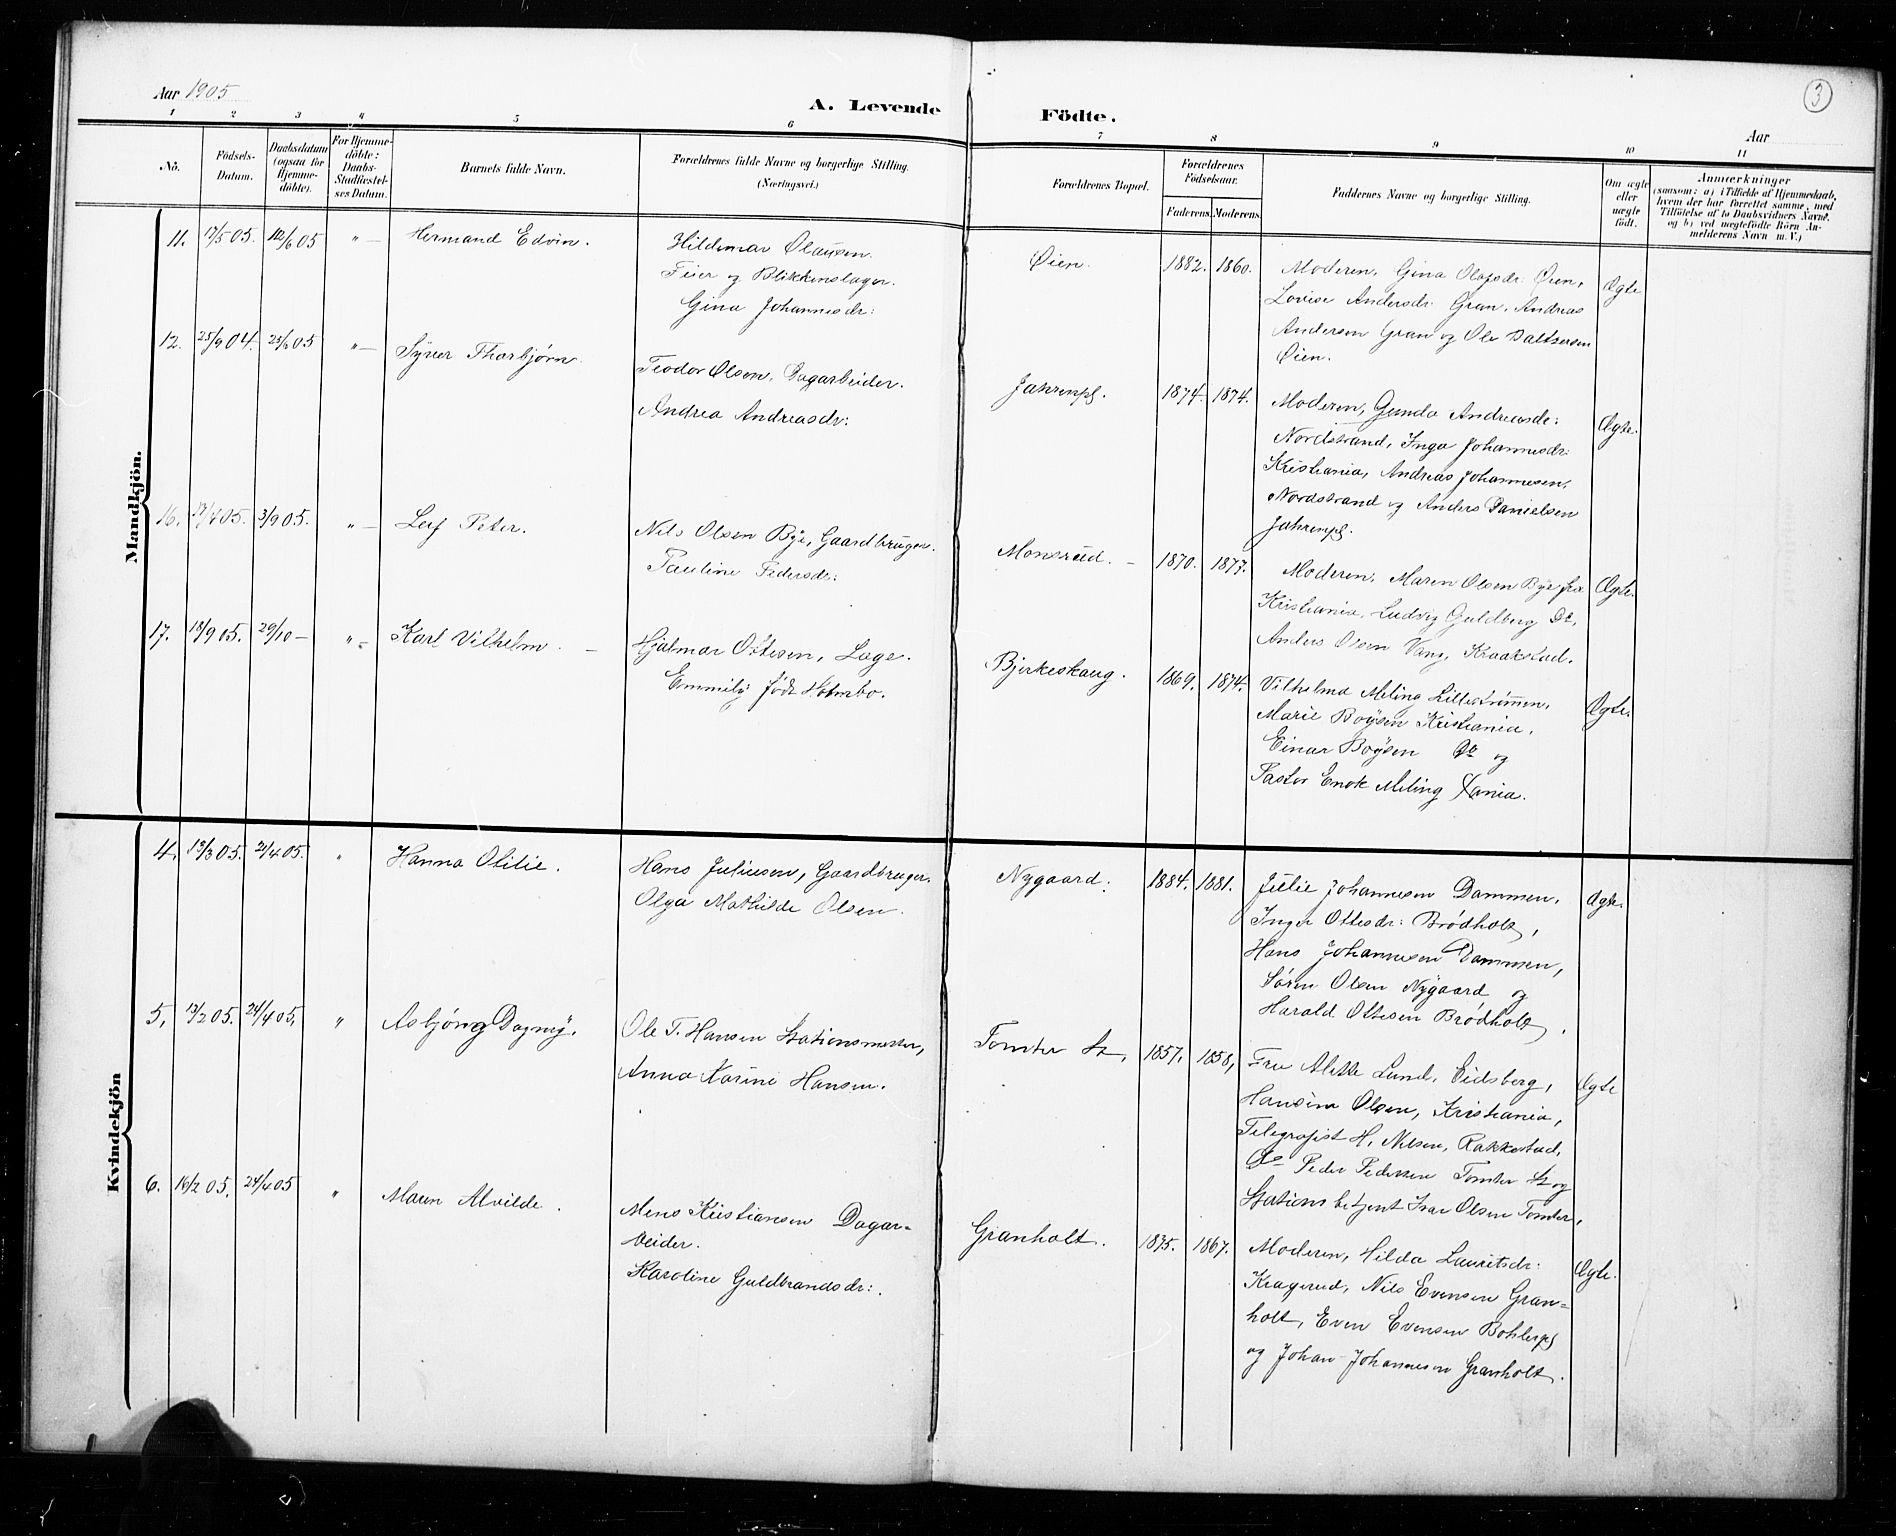 Aar 1905
A. Levende Födte.
3
Aar
1 2 3 4 5 6 7 8 9 10 11
No.
Födsels-Datum.
Daabsdatum (ogsaa for Hjemme-döbte).
For Hjemme-döbte: Daabs-Stadfæstel-ses Datum.
Barnets fulde Navn.
Forældrenes fulde Navne og borgerlige Stilling. (Næringsvei.)
Forældrenes Bopæl.
Forældrenes Födselsaar.
Faderens. Moderens.
Faddernes Navne og borgerlige Stilling.
Om ægte eller uægte födt.
Anmærkninger
(saasom: a) i Tilfælde af Hjemmedaab,
hvem der har forrettet samme, med
Tilföielse af to Daabsvidners Navne,
og b) ved uægtefödte Börn An-
melderens Navn m. V.)
Mandkjön.
11. 17/5 05. 12/6 05 "— Hermand Edvin.
Hildemar Olausen.
Feier og Blikkenslager.
Gina Johannesdr:
Øien. 1882. 1860.
Moderen, Gina Olafsdr: Øien,
Lovise Andersdr: Gran, Andreas
Andersen Gran og Ole Baltsersen
Øien.
Ægte
12. 25/9 04. 25/6 05 "— Syver Thorbjørn.
Teodor Olsen, Dagarbeider.
Andrea Andreasdr:
Jahrenpl. 1874. 1874.
Moderen, Gunda Andreasdr:
Nordstrand, Inga Johannesdr:
Kristiania, Andreas Johannesen,
Nordstrand og Anders Danielsen
Jahrenpl.
Ægte.
16. 17/4 05. 3/9 05. "— Leif Peter.
Nils Olsen Bye, Gaardbruger.
Pauline Pedersdr:
Monsrud. — 1870. 1877.
Moderen, Maren Olsen Bye fra
Kristiania, Ludvig Guldberg Do,
Anders Olsen Vang, Kraakstad.
Ægte.
17. 18/9 05. 29/10 — "— Karl Vilhelm. —
Hjalmar Ottesen, Læge.
Emmily født Holmbo.
Bjerkeskaug. 1869. 1874.
Vilhelma Meling Lillestrømmen,
Marie Boysen Kristiania,
Einar Boysen Do og
Pastor Enok Meling Xania.
Ægte.
Kvindekjön
4. 13/3 05. 21/4 05. " Hanna Otilie.
Hans Juliussen, Gaardbruger.
Olga Mathilde Olsen.
Nygaard. 1884. 1881.
Julie Johannesen Dammen,
Inger Ottesdr: Brødholt,
Hans Johannesen Dammen,
Søren Olsen Nygaard og
Harald Ottesen Brødholt.
Ægte.
5. 13/2 05. 24/4 05. " Asbjörg Dagny.
Ole T. Hansen Stationsmester,
Anna Karine Hansen.
Tomter St, 1857. 1858,
Fru Alette Lund, Eidsberg,
Hansine Olsen, Kristiania,
Telegrafist H. Nilsen, Rakkestad,
Do Peder Pedersen Tomter St og
Stationsbetjent Ivar Olsen Tomter,
Ægte
6. 16/2 05. 24/4 05 " Maren Alvilde.
Mens Kristiansen Dagar-
beider.
Karoline Guldbrandsdr:.
Granholt. 1875. 1867.
Moderen, Hilda Lauritsdr:
Kragerud, Nils Evensen Gran=
holt, Even Evensen Bohlerpl
og Johan Johannesen Granholt.
Ægte.